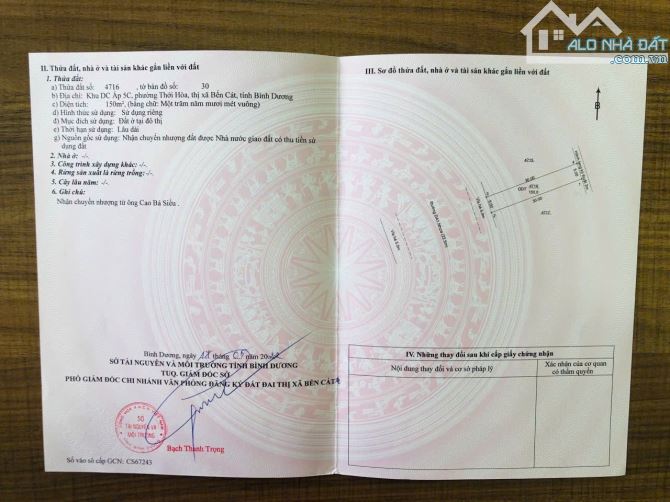 ALO NHÀ ĐẤT
.com.vn
II. Thửa đất, nhà ở và tài sản khác gắn liền với đất
1. Thửa đất:
a) Thửa đất số: 4716, tờ bản đồ số: 30
b) Địa chỉ: Khu DC Ấp 5C, phường Thới Hòa, thị xã Bến Cát, tỉnh Bình Dương
c) Diện tích: 150m², (bằng chữ: Một trăm năm mươi mét vuông)
d) Hình thức sử dụng: Sử dụng riêng
đ) Mục đích sử dụng: Đất ở tại đô thị
e) Thời hạn sử dụng: Lâu dài
g) Nguồn gốc sử dụng: Nhận chuyển nhượng đất được Nhà nước giao đất có thu tiền sử
dụng đất
2. Nhà ở: -/-
3. Công trình xây dựng khác: -/-
4. Rừng sản xuất là rừng trồng: -/-
5. Cây lâu năm: -/-
6. Ghi chú:
Nhận chuyển nhượng từ ông Cao Bá Siều.
Bình Dương, ngày 18 tháng năm
SỞ TÀI NGUYÊN VÀ MÔI TRƯỜNG TỈNH BÌNH DƯƠNG
TUQ. GIÁM ĐỐC SỞ
PHÓ GIÁM ĐỐC CHI NHÁNH VĂN PHÒNG ĐĂNG KÝ ĐẤT ĐAI THỊ XÃ BẾN CÁT
SỞ
TÀI NGUYÊN VÀ
MÔI TRƯỜNG
Bạch Thanh Trọng
Số vào sổ cấp GCN: CS67243
III. Sơ đồ thửa đất, nhà ở và tài sản khác gắn liền với đất
B
4715
30.00
4716
150.0
30.00
4717
5.00
5.00
IV. Những thay đổi sau khi cấp giấy chứng nhận
Nội dung thay đổi và cơ sở pháp lý
Xác nhận của cơ quan
có thẩm quyền